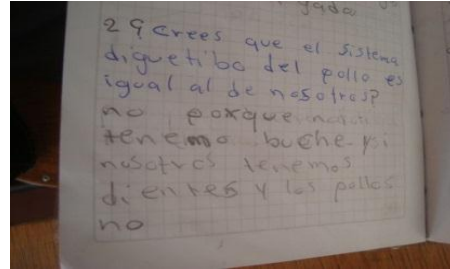 gada
2 ¿crees que el sistema
diguetibo del pollo es
igual al de nosotros?
no porque no
tenemo buche y si
nosotros tenemos
dientes y los pollos
no